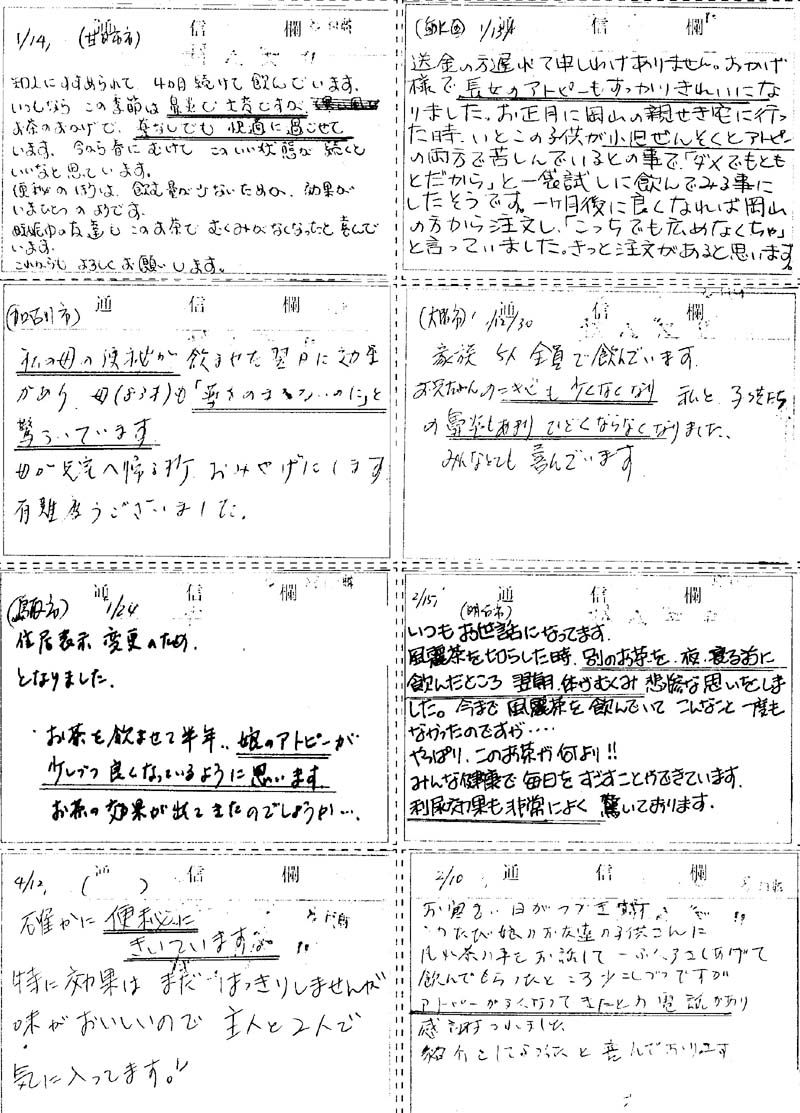 通信欄
1/14, (廿日市市)
知人にすすめられて 4カ月 続けて 飲んでいます。
いつもなら この季節は 鼻炎で 大変ですが、
お茶のおかげで、薬なしでも 快適に 過ごせて
います。今から春にむけて このいい状態が 続くと
いいなと 思っています。
便秘のほうは、飲む量が少ないためか、効果が
いまひとつのようです。
妊娠中の友達も このお茶で むくみがなくなったと 喜んで
います。
これからも よろしくお願いします。
通信欄
1/13
送金の方遅れて申しわけありません。おかげ
様で長女のアトピーもすっかりきれいにな
りました。お正月に岡山の親せき宅に行っ
た時、いとこの子供が小児ぜんそくとアトピー
の両方で苦しんでいるとの事で、「ダメでもとも
とだから」と一袋試しに飲んでみる事に
したそうです。一ヶ月後に良くなれば岡山
の方から注文し、「こっちでも広めなくちゃ」
と言っていました。きっと注文があると思います。
通信欄
(加古川市)
私の母の便秘が 飲ませた翌日に効果
があり、母も
驚ろいています
母が 帰る時 おみやげにします
有難度うございました。
通信欄
12/30
家族 5人 全員で飲んでいます。
お兄ちゃんのニキビも 少くなくなり 私と 子供たち
の 鼻炎もあまり ひどくならなくなりました。
みんなとても 喜んでいます
通信欄
1/24
住居表示 変更のため、
となりました。
お茶を飲ませて半年.. 娘のアトピーが
少しづつ 良くなっているように 思います。
お茶の効果が出てきたのでしょうか…。
通信欄
2/15, (明石市)
いつも お世話になってます。
風麗茶を切らした時、別のお茶を、夜、寝る前に
飲んだところ 翌朝、体がむくみ 悲惨な思いをしま
した。今まで 風麗茶を飲んでいて こんなこと一度も
なかったのですが‥‥
やっぱり、このお茶が何より!!
みんな健康で 毎日を すごすことができています。
利尿効果も非常によく 驚いております。
通信欄
4/12, ( )
確かに 便秘に
きいています。
特に効果は まだ はっきりしませんが
味がおいしいので 主人と2人で
気に入ってます。
通信欄
2/10
お寒い日がつづきます
このたび娘のお友達の子供さんに
お話して 一ふくろさしあげて
飲んでもらったところ少しづつですが
アトピーがよくなってきたとお電話があり
感謝されました
紹介してよかったと喜んでおります